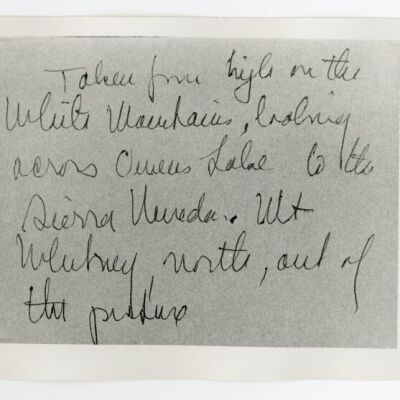 Taken from high on the
White Mountains, looking
across Owens Lake to the
Sierra Nevada. Mt
Whitney north, out of
the picture